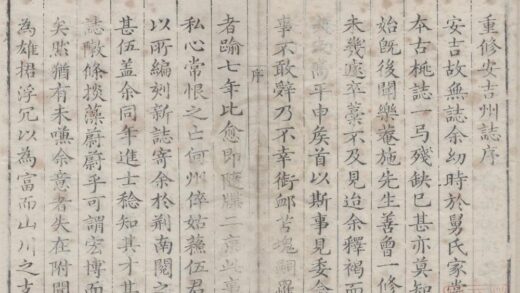 重修安吉州誌序
安吉故無誌余幼時於舅氏家嘗
本古桃誌一馬殘缺已甚亦莫知
始旣後聞樂菴施先生善曾一修
未幾遽卒藁不及見迨余釋褐而
平申矣首以斯事見委余
事不敢辤乃不幸銜卹苫塊嗣罹
序
者踰七年比愈即隨牒二京此事
私心常恨之亡何州倅姑蘇伍君
以所編刻新誌寄余於荊南閱之
甚伍蓋余同年進士稔知其才其
誌敶條掞藻蔚蔚乎可謂宏博而
矣貹猶有未嗛余意者失在附聞
為雄捃浮冗以為富而山川之古